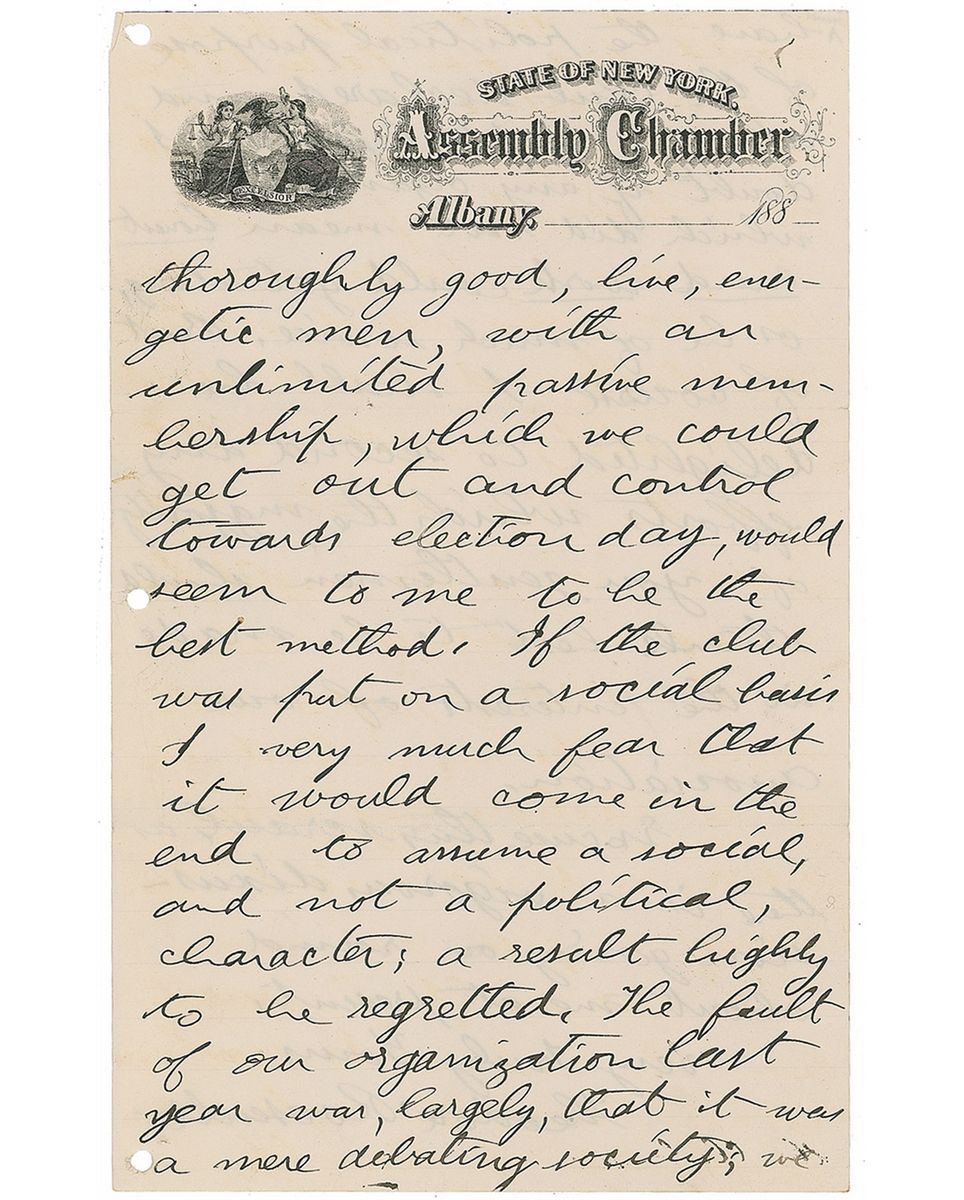 STATE OF NEW YORK.
Assembly Chamber
EXCELSIOR
Albany, 188
thoroughly good, live, ener-
getic men, with an
unlimited passive mem-
bership, which we could
get out and control
towards election day, would
seem to me to be the
best method. If the club
was put on a social basis
I very much fear that
it would come in the
end to assume a social,
and not a political,
character; a result highly
to be regretted. The fault
of our organization last
year was, largely, that it was
a mere debating society; we